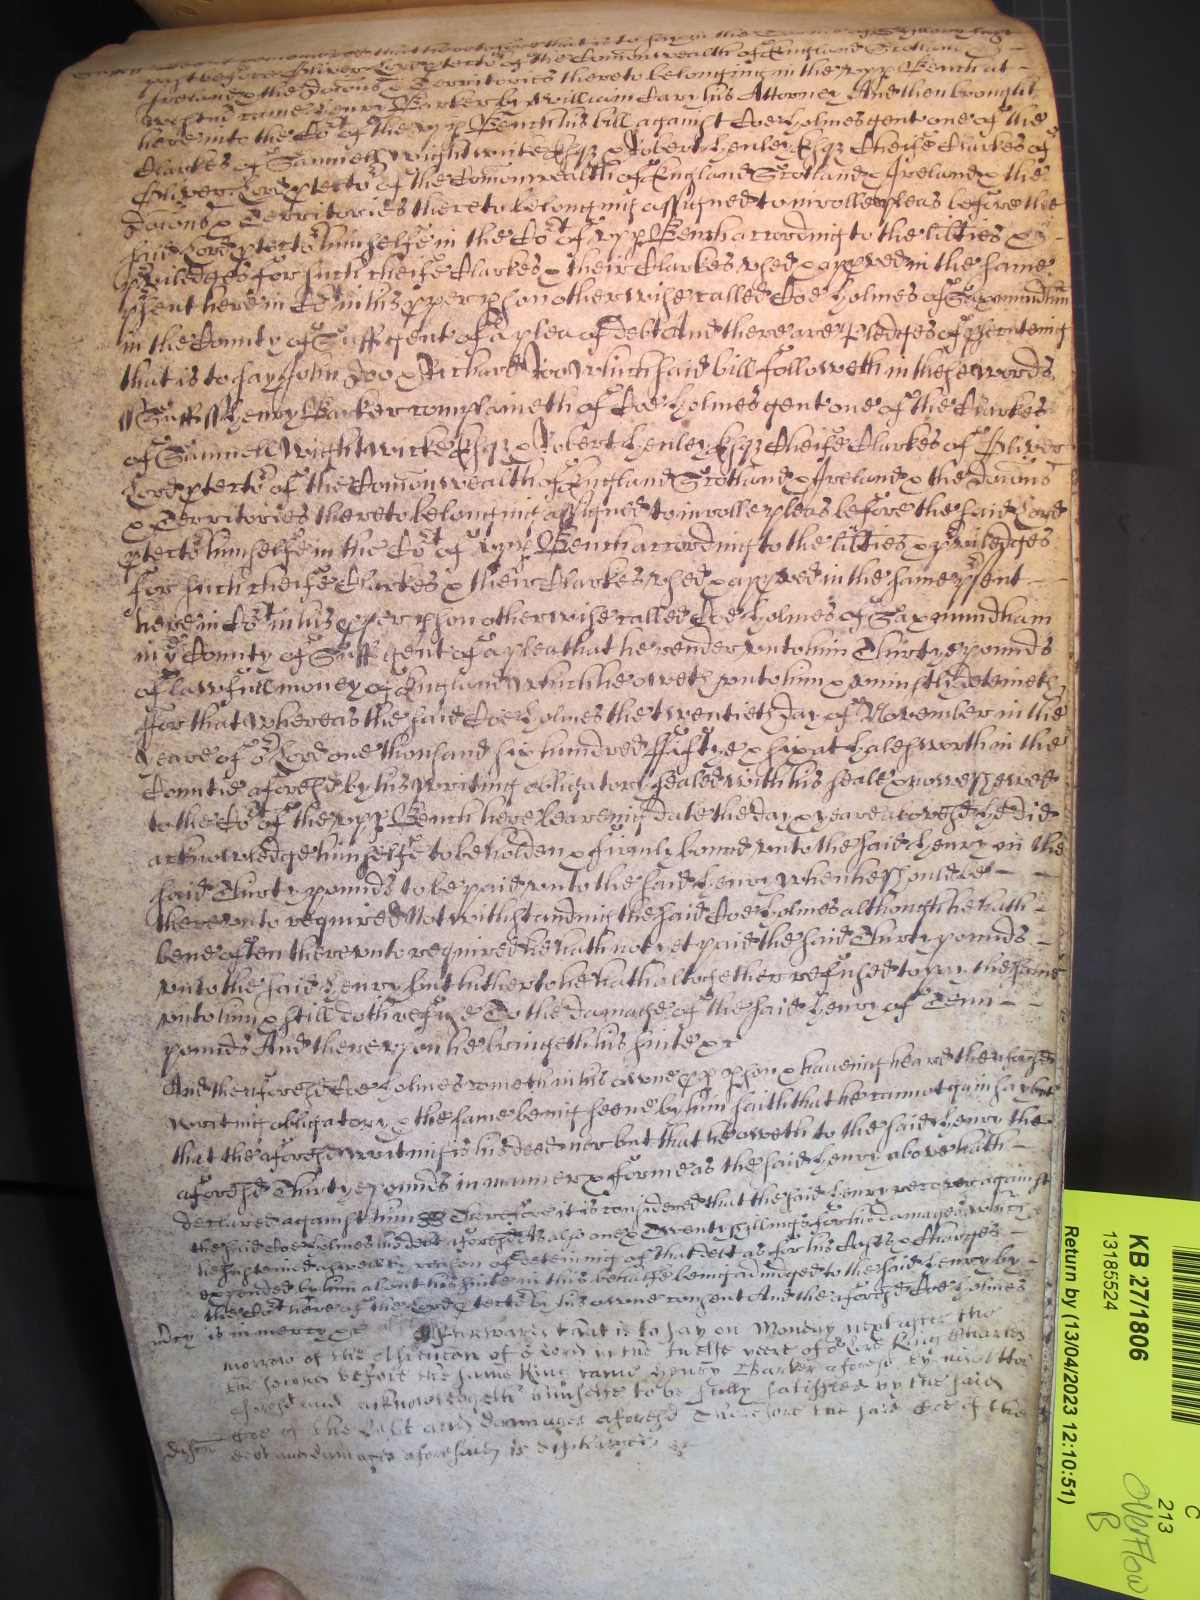 Suff ss Memorand that heretofore that is to say in the Terme of
past before Oliver Lord ptector of the Comonwealth of England Scotland &
Ireland & the Dominons & Territories thereto belonging in the vpp Bench at
Westmr came Henry Barker by William Cary his Attorney And then brought
here into the Cot of the vpp Bench his bill against Coe Holmes gent one of the
Clarkes of Samuell Wightwicke Esqr & Robert Henley Esqr Cheife Clarkes of
Oliver Lord ptector of the Comonwealth of England Scotland & Ireland & the
Doions & Territories thereto belonging assigned to inrolle pleas before the
said Lord ptector himselfe in the Cot of vpp Bench according to the libties &
priviledges for such cheife Clarkes & their Clarkes vsed & appved in the same
psent here in Cot in his pper pson otherwise called Coe Holmes of Saxmundham
in the County of Suff gent of a plea of debt And there are pledges of psecuteing
that is to say John Doo & Richard Roo Which said bill followeth in these words
Suff ss Henry Barker complaineth of Coe Holmes gent one of the Clarkes
of Samuell Wightwicke Esqr & Robert Henley Esqr Cheife Clarkes of Oliver
Lord ptector of the Comonwealth of England Scotland & Ireland & the Doions
& Territories thereto belonging assigned to inrolle pleas before the said Lord
ptector himselfe in the Cot of vpp Bench according to the libties & priviledges
for such cheife Clarkes & their Clarkes vsed & appved in the same psent
here in Cot in his pper pson otherwise called Coe Holmes of Saxmundham
in ye County of Suff gent of a plea that he render vnto him Thirtye pounds
of lawfull money of England which he oweth vnto him & vniustly deteineth
ffor that whereas the said Coe Holmes the twentieth day of November in the
yeare of or Lord one thousand six hundred ffiftye & six at Halesworth in the
Countie aforesd by his writing obligatory sealed with his seale & now shewed
to the Cot of the vpp Bench here beareing date the day & yeare abovesd did
acknowledge himselfe to be holden & firmly bound vnto the said Henry in the
said Thirty pounds to be paid vnto the said Henry when he should be
therevnto required Notwithstanding the said Coe Holmes although he hath
bene often therevnto required he hath not yet paid the said Thirty pounds
vnto the said Henry but hitherto he hath altogether refused to pay the same
vnto him & still doth refuse To the damage of the said Henry of Tenn
pounds And therevpon he bringeth his suite &c
And the aforesd Coe Holmes cometh in his owne pp pson & haveing heard the aforesd
writing obligatory & the same being seene by him saith that he cannot gainsay but
that the aforesd writing is his deed nor but that he oweth to the said Henry the
aforesd Thirtye pounds in manner & forme as the said Henry above hath
declared against him Therefore it is considered that the said Henry recover against
the said Coe Holmes his debt aforesd As also Twenty shillings for his damages which
he susteined as well by reason of deteining of that debt as for his Costs & Charges
expended by him about his suite in this behalfe being adiudged to the said Henry by
the Cot here of the Lord ptector by his owne consent And the aforesd Coe Holmes
Mcy is in mercy &c Afterwards that is to say on Monday next after the
morrow of the Ascencon of or Lord in the Twelfe yeere of or Lord King Charles
the second before the same King came Henry Barker aforesd by his Attor
aforesd and acknowledgeth himselfe to be fully satisfied by the said
Coe of the debt and damages aforesd Therefore the said Coe of the
debt and damages aforesaid is discharged &c
KB 27/1806
13185524
Return by (13/04/2023 12:10:51)
C
213
OverFlow
B